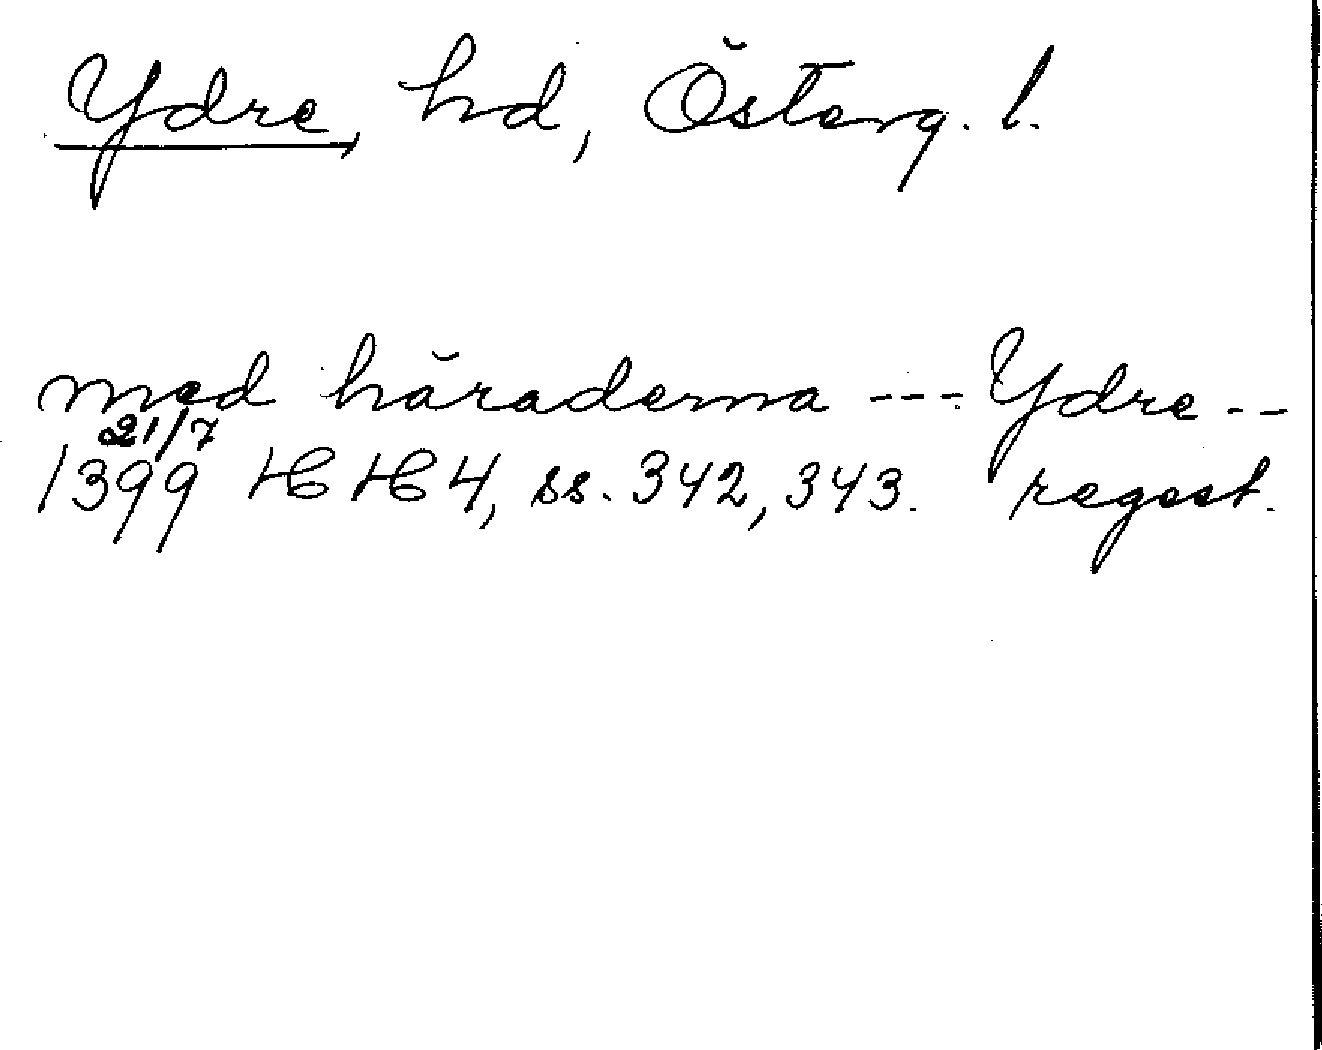 Ydre, hd, Österg. l.
med häraderna --- Ydre --
21/7
1399 HH 4, ss. 342, 343. regest.